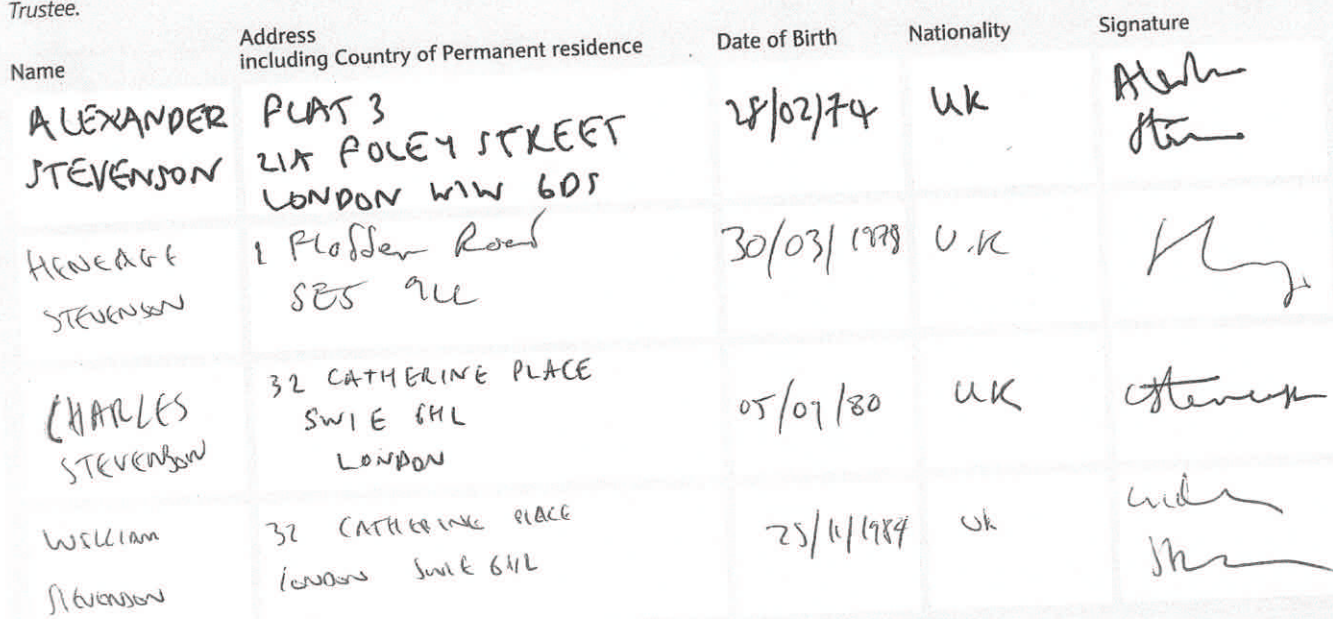 Trustee.
Name
Address
including Country of Permanent residence
Date of Birth
Nationality
Signature
ALEXANDER
STEVENSON
FLAT 3
21A FOLEY STREET
LONDON W1W 6DS
28/02/74
UK
HENEAGE
STEVENSON
1 Flodden Road
SE5 9LL
30/03/1978
U.K
CHARLES
STEVENSON
32 CATHERINE PLACE
SW1E 6HL
LONDON
UK
WILLIAM
STEVENSON
32 CATHERINE PLACE
LONDON SW1E 6HL
/11/1984
UK